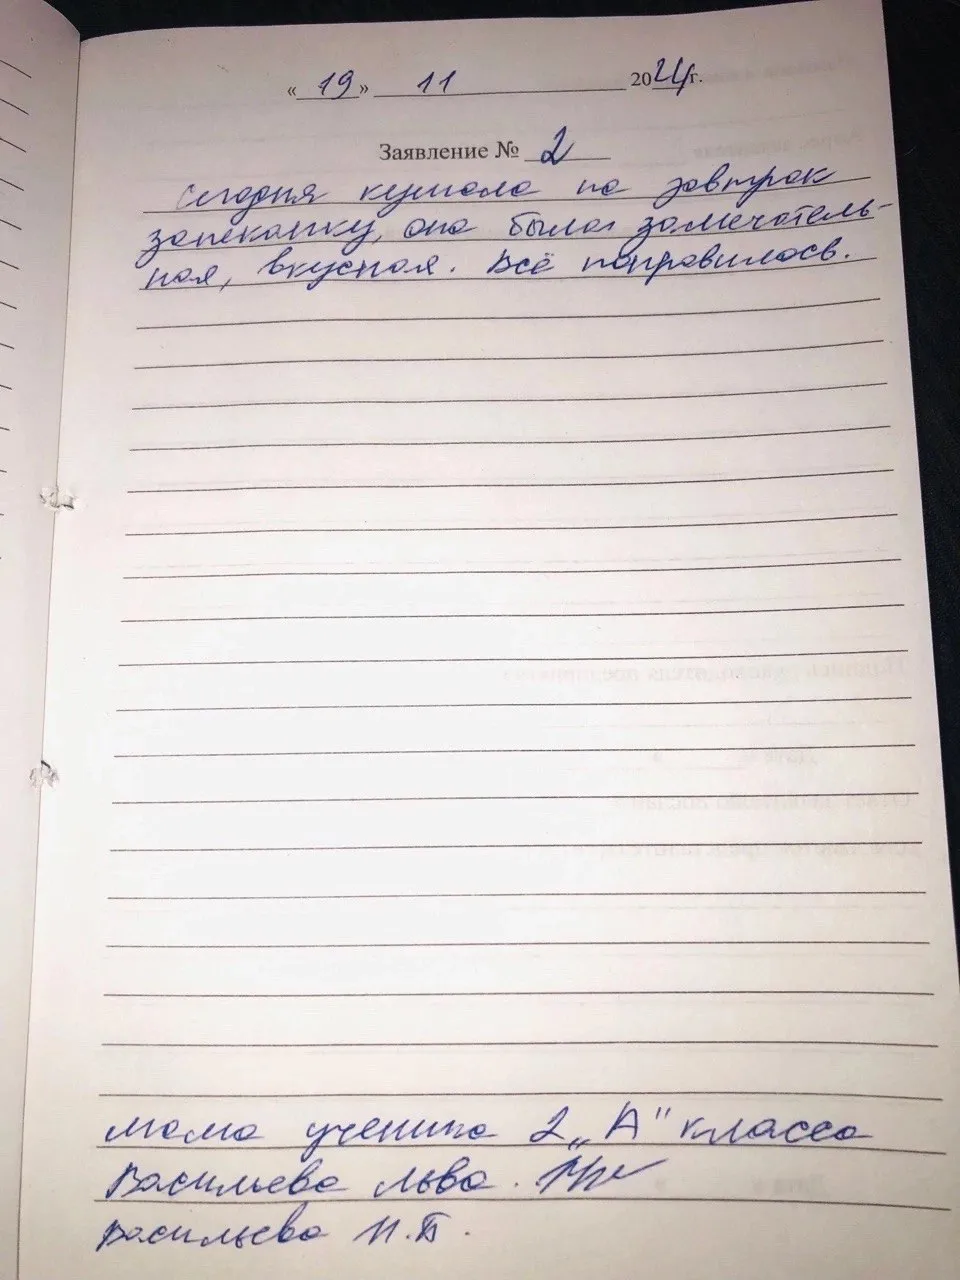 «19» 11 2024г.
Заявление № 2
Сегодня кушала на завтрак
запеканку, она была замечатель-
ная, вкусная. Всё понравилось.
мама ученика 2 „А" класса
Васильева Льва.
Васильева Н.Б.